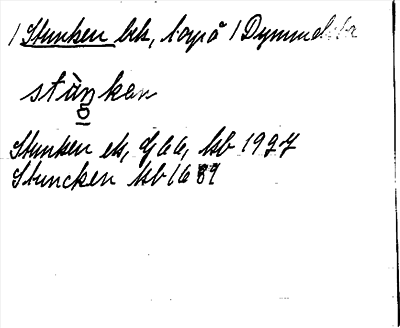 / Stunken bek, torp å / Dymmelsta
stùŋken
Stunken ek, G66, kb 1927
Stuncken kb 1689